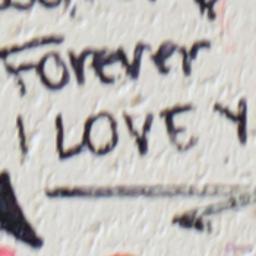 Forever
I LOVE Y